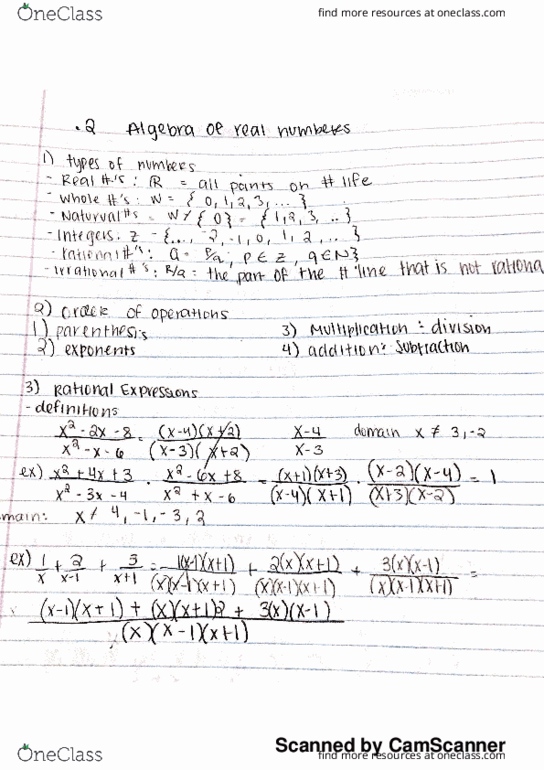 OneClass
find more resources at oneclass.com
.2 Algebra of real numbers
1) types of numbers
- Real #'s : ℝ = all points on # life
- whole #'s : W = { 0, 1, 2, 3, ... }
- Naturval #s = W / { 0 } = { 1, 2, 3, .. }
- Integers : z - {..., -2, -1, 0, 1, 2, .. }
- rational #'s : Q = P/q, p ∈ z, q ∈ N }
- irrational #'s : R/Q = the part of the # line that is not rationa
2) order of operations
1) parenthesis 3) Multiplication : division
2) exponents 4) addition : subtraction
3) Rational Expressions
- definitions
x² - 2x - 8 / x² - x - 6 = (x-4)(x+2) / (x-3)(x+2) x-4 / x-3 domain x ≠ 3, -2
ex) x² + 4x + 3 / x² - 3x - 4 · x² - 6x + 8 / x² + x - 6 = (x+1)(x+3) / (x-4)(x+1) · (x-2)(x-4) / (x+3)(x-2) = 1
main: x ≠ 4, -1, -3, 2
ex) 1/x + 2/x-1 + 3/x+1 = 1(x-1)(x+1) / (x)(x-1)(x+1) + 2(x)(x+1) / (x)(x-1)(x+1) + 3(x)(x-1) / (x)(x-1)(x+1) =
(x-1)(x+1) + (x)(x+1)2 + 3(x)(x-1) / (x)(x-1)(x+1)
Scanned by CamScanner
OneClass
find more resources at oneclass.com